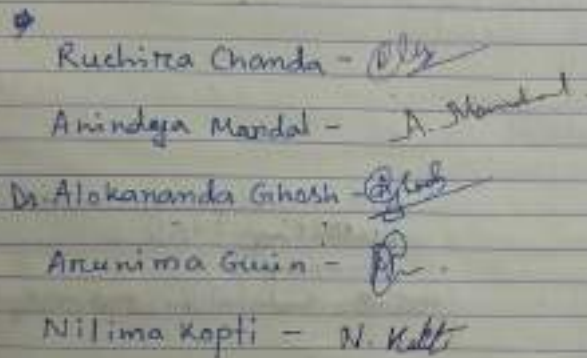 Ruchira Chanda -
Anindya Mandal - A. Mandal
Dr. Alokananda Ghosh - Ghosh
Arunima Guin -
Nilima Kopti - N.